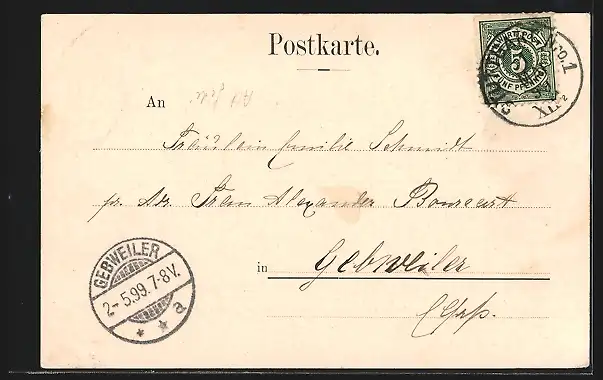 Postkarte.
No. 1
5
FÜNF PFENNIG
XII
An
Fräulein Emilie Schmidt
pr. Adr. Frau Alexander Bourcart
in Gebweiler
Elsass.
GEBWEILER
2-5.99.7-8V.
* * a